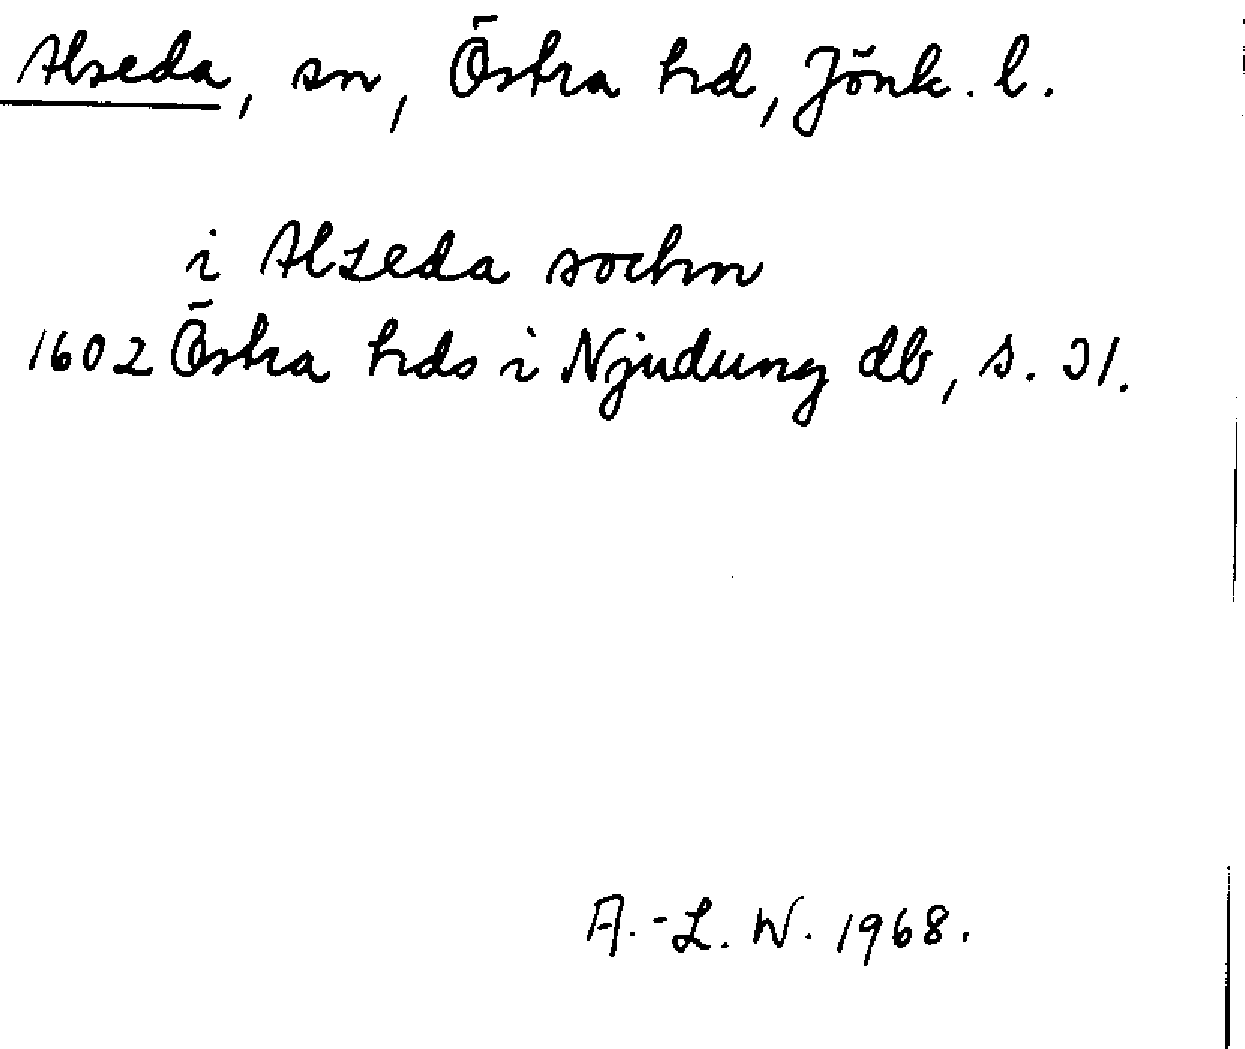 Alseda, sn, Östra hd, Jönk. l.
i Alzeda sochn
1602 Östra hds i Njudung db, s. 31.
A.-L. W. 1968.